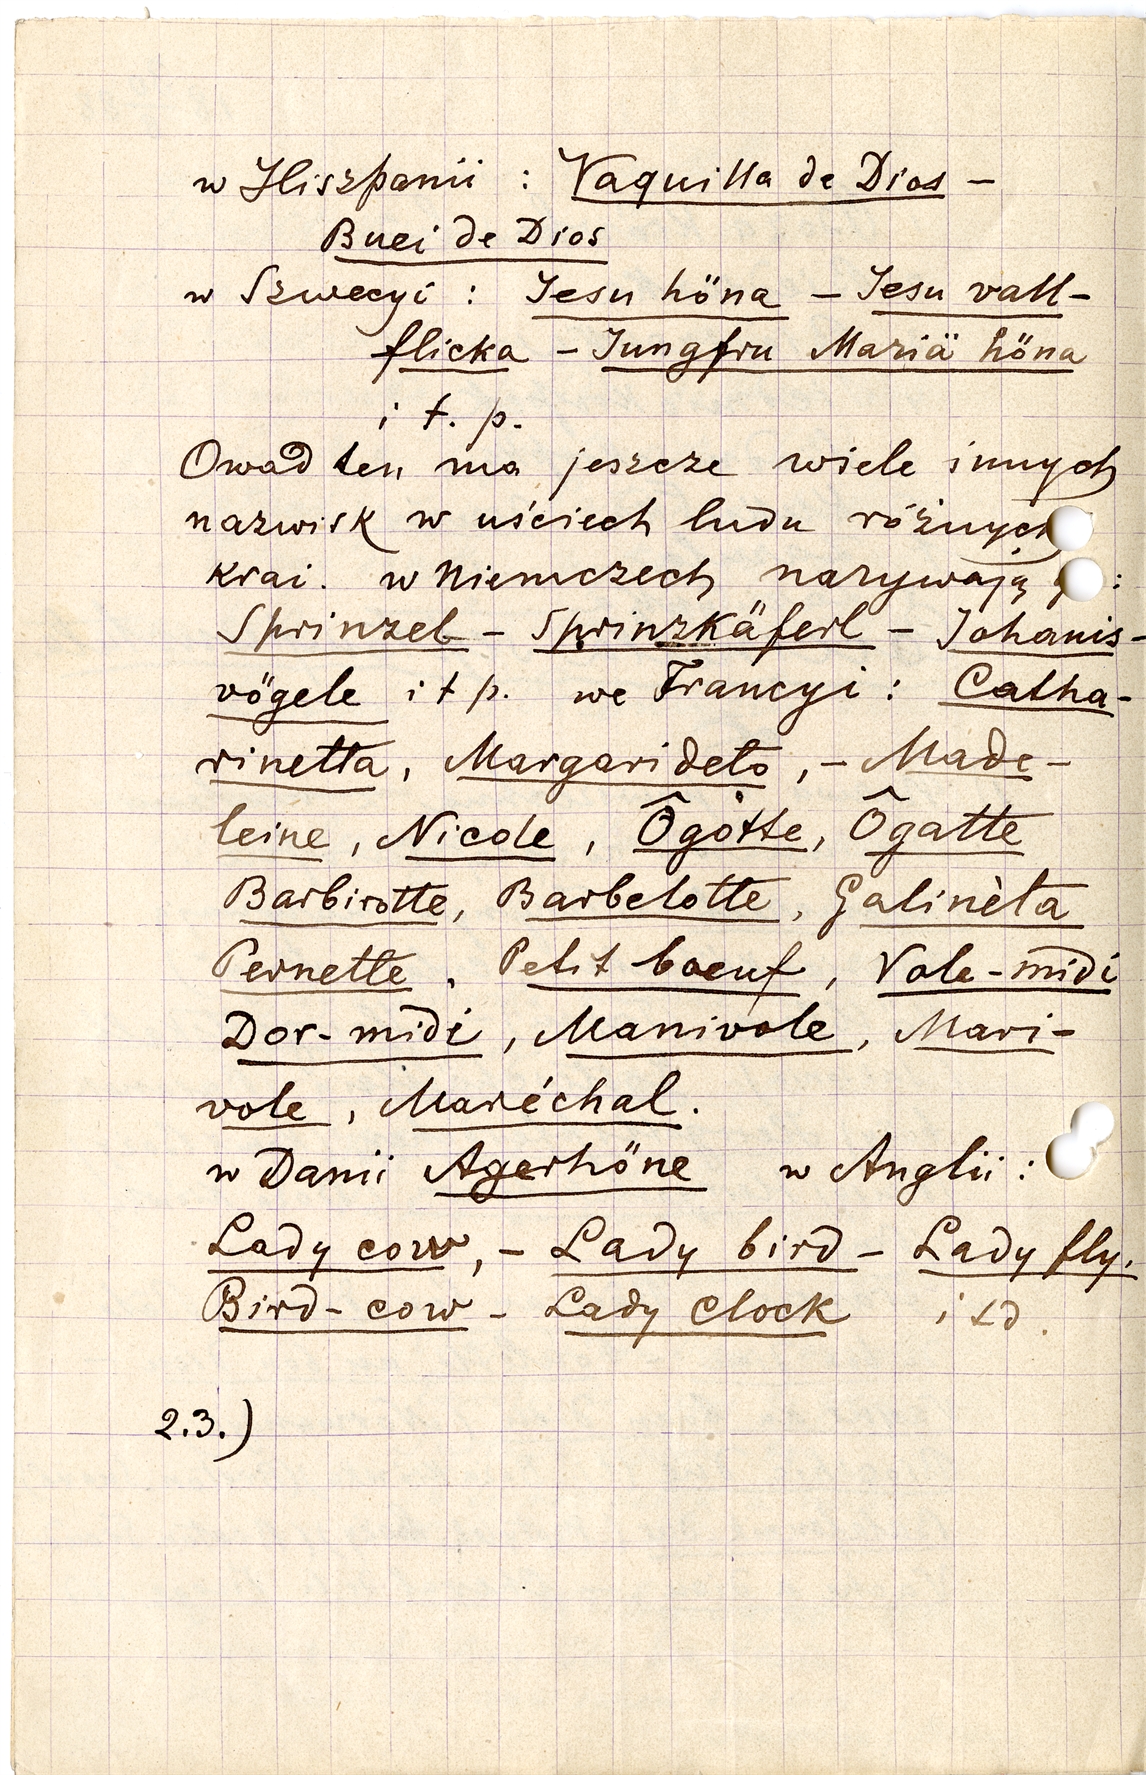 w Hiszpanii : Vaquilla de Dios –
Buei de Dios
w Szwecyi : Jesu höna – Jesu vall-
flicka – Jungfru Mariä höna
i t. p.
Owad ten ma jeszcze wiele innych
nazwisk w uściech ludu różnych
krai. w Niemczech nazywają :
Sprinzel – Sprinzkäferl – Johanis-
vögele i t p. we Francyi : Catha-
rinetta, Margarideto, – Made-
leine, Nicole, Ôgotte, Ôgatte
Barbirotte, Barbelotte, Galinèta
Pernette, Petit boeuf, Vole-midi
Dor-midi, Manivole, Mari-
vole, Maréchal.
w Danii Agerhöne w Anglii :
Lady cow, – Lady bird – Lady fly.
Bird-cow – Lady clock i td.
2.3.)